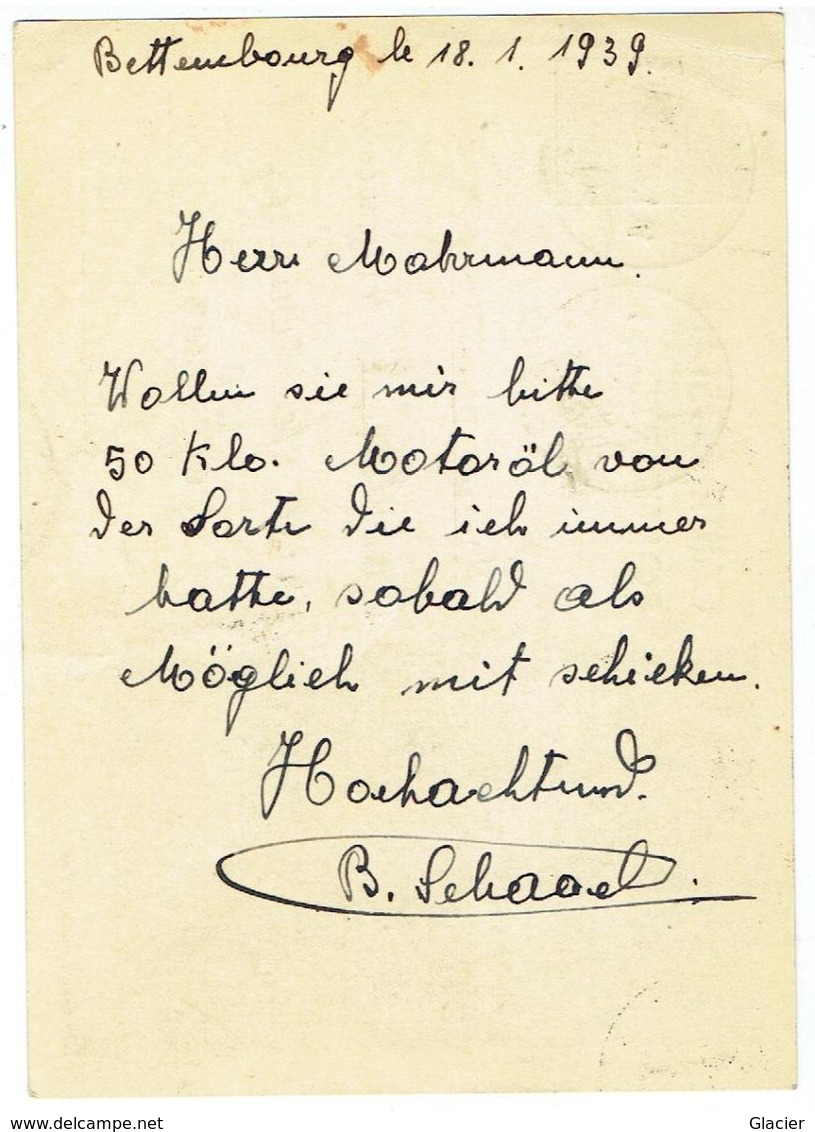 Bettembourg le 18. 1. 1939.
Herrn Mahrmann.
Wollen sie mir bitte
50 Klo. Motoröl von
der Sorte die ich immer
hatte, sobald als
Möglich mit schicken.
Hochachtund.
B. Schaael.
delcampe.net
Glacier